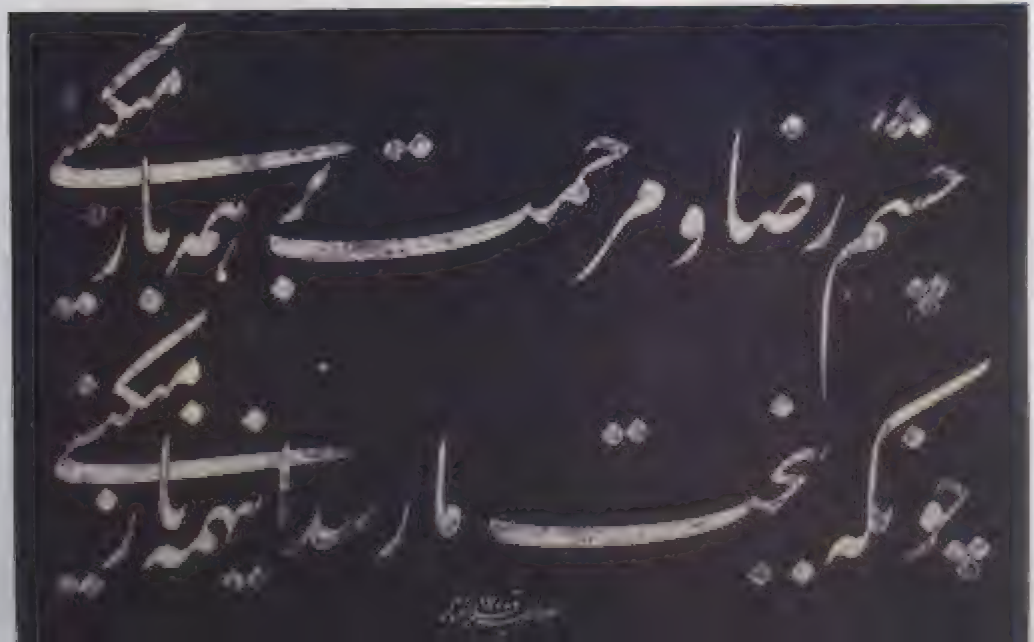 چشم رضا و مرحمت بر همه باز میکنی
چونکه ببخت ما رسد اینهمه ناز میکنی